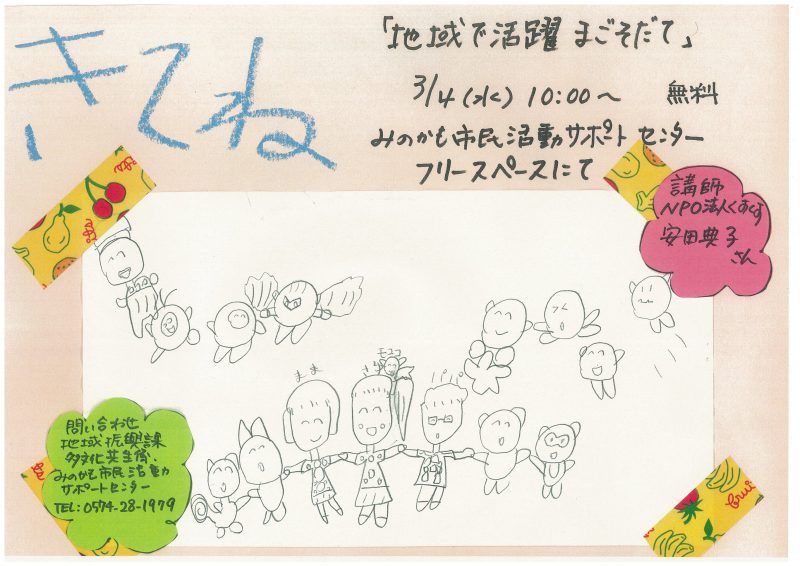 きてね
「地域で活躍 まごそだて」
3/4(水) 10:00〜 無料
みのかも市民活動サポートセンター
フリースペースにて
講師
NPO法人くすくす
安田典子
さん
モココ
まま
パパ
問い合わせ
地域振興課
多文化共生係、
みのかも市民活動
サポートセンター
TEL:0574-28-1979